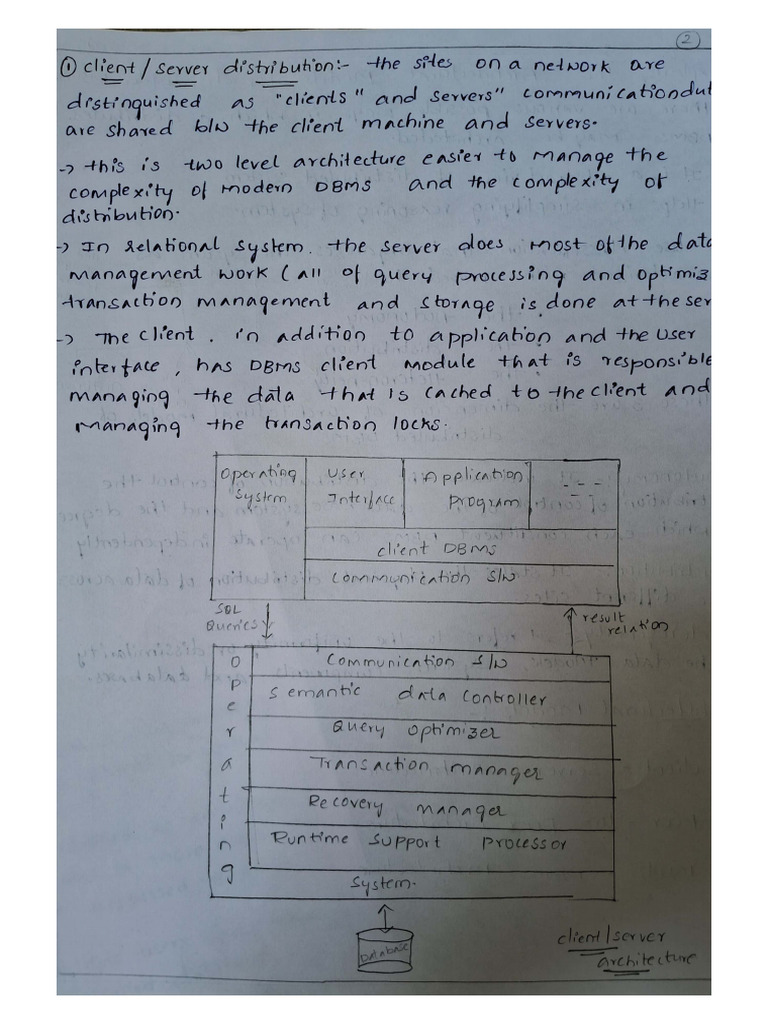 2
① client / server distribution:- the sites on a network are
distinguished as "clients" and servers" communicationdut
are shared b/w the client machine and servers.
-> this is two level architecture easier to manage the
complexity of modern DBMS and the complexity of
distribution.
-> In relational system. the server does most of the data
management work (all of query processing and optimiz
transaction management and storage is done at the ser
-> The client. in addition to application and the user
interface, has DBMS client module that is responsible
managing the data that is cached to the client and
managing the transaction locks.
Operating System
User Interface
Application Program
- - - -
client DBMS
communication s/w
SQL Queries
result relation
Communication s/w
Semantic data controller
Query optimizer
Transaction manager
Recovery manager
Runtime support processor
Operating
System.
Database
client/server
architecture